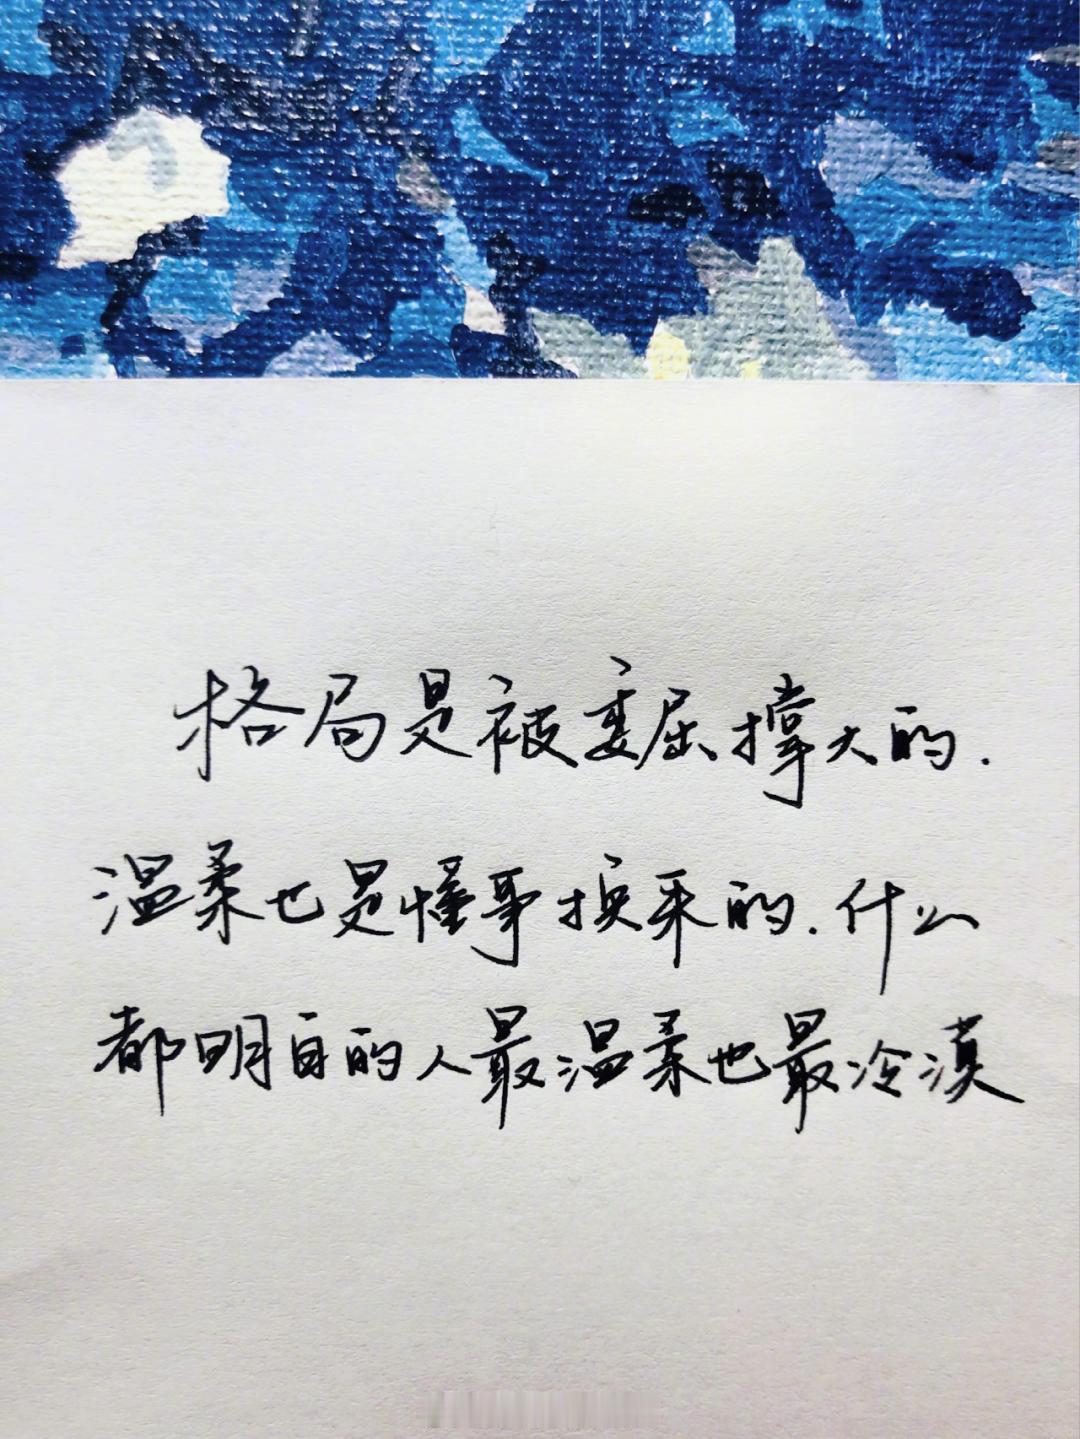 格局是被委屈撑大的.
温柔也是懂事换来的.什么
都明白的人最温柔也最冷漠